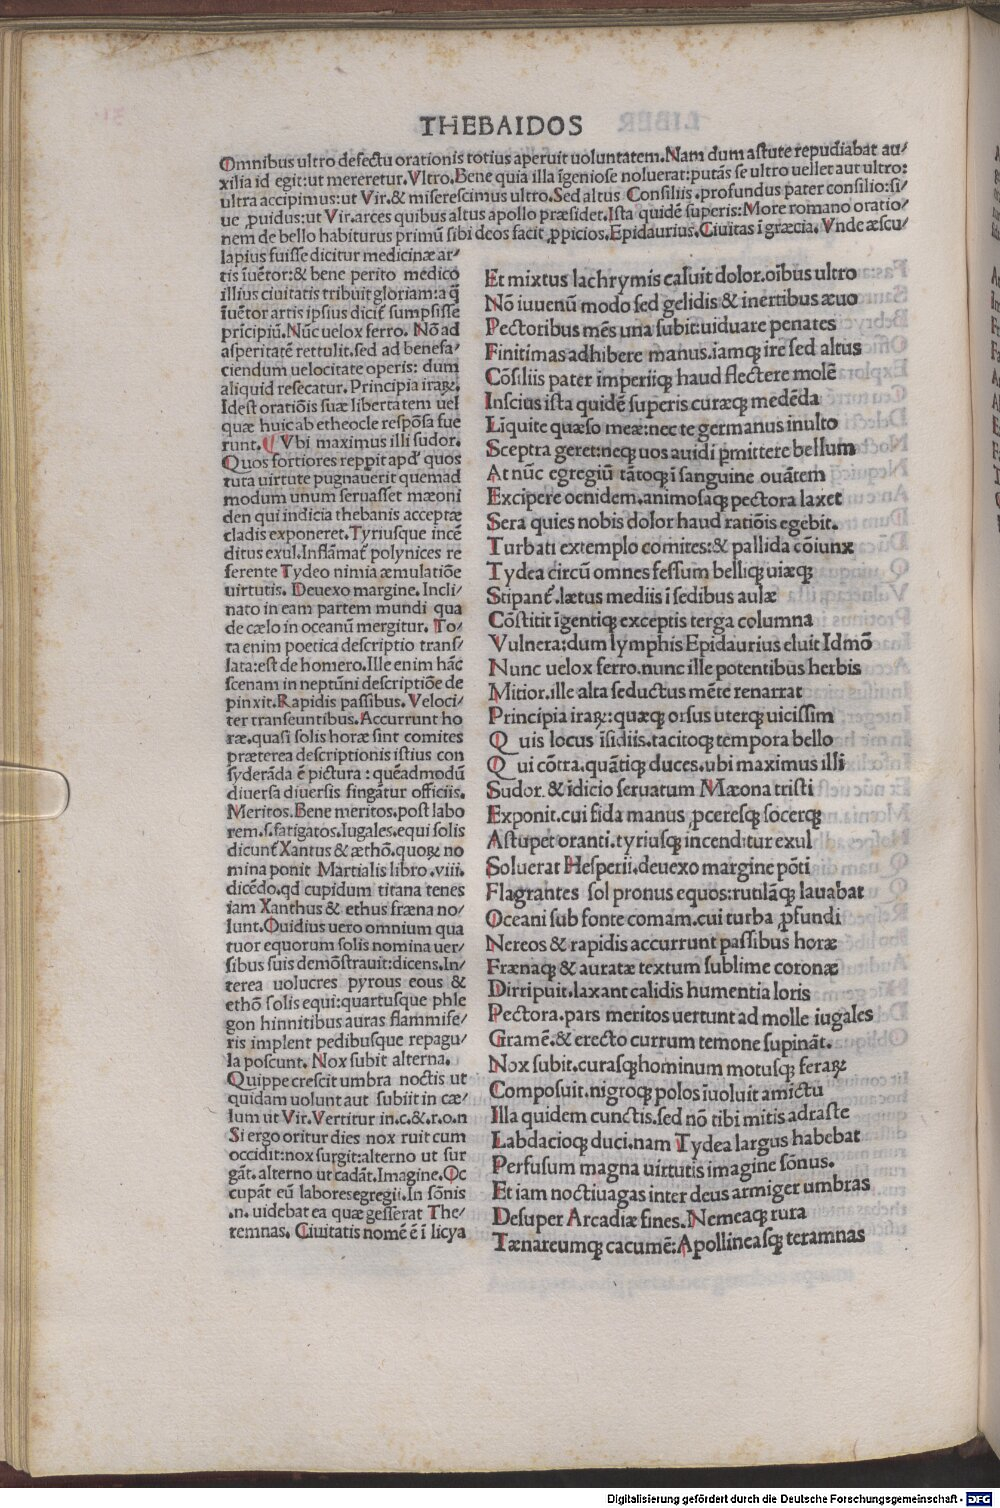 THEBAIDOS
Omnibus ultro defectu orationis totius aperuit uoluntatem. Nam dum astute repudiabat au/
xilia id egit: ut mereretur. Vltro. Bene quia illa īgeniose noluerat: putās se ultro uellet aut ultro:
ultra accipimus: ut Vir. & miserescimus ultro. Sed altus Consiliis. profundus pater consilio: si/
ue ꝓuidus: ut Vir. arces quibus altus apollo præsidet. Ista quidē superis: More romano oratio/
nem de bello habiturus primū sibi deos facit ꝓpicios. Epidaurius. Ciuitas ī græcia. Vnde æscu/
lapius fuisse dicitur medicinæ ar/
tis īuētor: & bene perito medico
illius ciuitatis tribuit gloriam: a q̄
īuētor artis ipsius dicit̄ sumpsisse
prīcipiū. Nūc uelox ferro. Nō ad
asperitatē rettulit. sed ad benefa/
ciendum uelocitate operis: dum
aliquid resecatur. Principia iraꝝ.
Idest oratiōis suæ libertatem uel
quæ huic ab etheocle respōsa fue
runt. ¶ Vbi maximus illi sudor.
Quos fortiores reppit apd' quos
tuta uirtute pugnauerit quemad
modum unum seruasset mæoni
den qui indicia thebanis acceptæ
cladis exponeret. Tyriusque incē
ditus exul. Inflāmat̄ polynices re
ferente Tydeo nimia æmulatiōe
uirtutis. Deuexo margine. Incli/
nato in eam partem mundi qua
de cælo in oceanū mergitur. To/
ta enim poetica descriptio trans/
lata: est de homero. Ille enim hāc
scenam in neptūni descriptiōe de
pinxit. Rapidis passibus. Veloci/
ter transeuntibus. Accurrunt ho
ræ. quasi solis horæ sint comites
præterea descriptionis istius con
syderāda ē pictura: quēadmodū
diuersa diuersis fingātur officiis.
Meritos. Bene meritos. post labo
rem. s. fatigatos. Iugales. equi solis
dicunt̄ Xantus & æthō. quoꝝ no
mina ponit Martialis libro .viii.
dicēdo. qd cupidum titana tenes
iam Xanthus & ethus fræna no/
lunt. Ouidius uero omnium qua
tuor equorum solis nomina uer/
sibus suis demōstrauit: dicens. In/
terea uolucres pyrous eous &
ethō solis equi: quartusque phle
gon hinnitibus auras flammife/
ris implent pedibusque repagu/
la poscunt. Nox subit alterna.
Quippe crescit umbra noctis ut
quidam uolunt aut subiit in cæ/
lum ut Vir. Vertitur in. c. &. r. o. n
Si ergo oritur dies nox ruit cum
occidit: nox surgit: alterno ut sur
gāt. alterno ut cadāt. Imagine. Oc
cupāt eū labores egregii. In sōnis
.n. uidebat ea quæ gesserat The/
remnas. Ciuitatis nomē ē ī licya
Et mixtus lachrymis caluit dolor. oībus ultro
Nō iuuenū modo sed gelidis & inertibus æuo
Pectoribus mēs una subit: uiduare penates
Finitimas adhibere manus. iamqꝫ ire sed altus
Cōsiliis pater imperiiqꝫ haud flectere molē
Inscius ista quidē superis curæqꝫ medēda
Liquite quæso meæ: nec te germanus inulto
Sceptra geret: neqꝫ uos auidi ꝑmittere bellum
At nūc egregiū tātoqꝫ ī sanguine ouātem
Excipere oenidem. animosaqꝫ pectora laxet
Sera quies nobis dolor haud ratiōis egebit.
Turbati extemplo comites: & pallida cōiunx
Tydea circū omnes fessum belliqꝫ uiæqꝫ
Stipant̄. lætus mediis ī sedibus aulæ
Cōstitit īgentiqꝫ exceptis terga columna
Vulnera: dum lymphis Epidaurius eluit Idmō
Nunc uelox ferro. nunc ille potentibus herbis
Mitior. ille alta seductus mēte renarrat
Principia iraꝝ: quæqꝫ orsus uterqꝫ uicissim
Quis locus īsidiis. tacitoqꝫ tempora bello
Qui cōtra. quātiqꝫ duces. ubi maximus illi
Sudor. & īdicio seruatum Mæona tristi
Exponit. cui fida manus ꝓceresqꝫ socerqꝫ
Astupet oranti. tyriusqꝫ incenditur exul
Soluerat Hesperii. deuexo margine pōti
Flagrantes sol pronus equos: rutilāqꝫ lauabat
Oceani sub fonte comam. cui turba ꝓfundi
Nereos & rapidis accurrunt passibus horæ
Frænaqꝫ & auratæ textum sublime coronæ
Dirripuit. laxant calidis humentia loris
Pectora. pars meritos uertunt ad molle iugales
Gramē. & erecto currum temone supināt.
Nox subit. curasqꝫ hominum motusqꝫ feraꝝ
Composuit. nigroqꝫ polos īuoluit amictu
Illa quidem cunctis. sed nō tibi mitis adraste
Labdacioqꝫ duci. nam Tydea largus habebat
Perfusum magna uirtutis imagine sōnus.
Et iam noctiuagas inter deus armiger umbras
Desuper Arcadiæ fines. Nemeaqꝫ rura
Tænareumqꝫ cacumē: Apollineasqꝫ teramnas
Digitalisierung gefördert durch die Deutsche Forschungsgemeinschaft - DFG